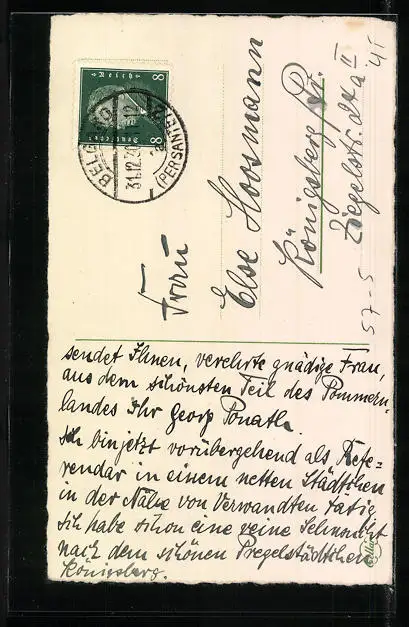 sendet Ihnen, verehrte gnädige Frau,
aus dem schönsten Teil des Pommern-
landes Ihr Georg Ponath
Ich bin jetzt vorübergehend als Refe=
rendar in einem netten Städtchen
in der Nähe von Verwandten tätig
ich habe schon eine reine Sehnsucht
nach dem schönen Pregelstädtchen
Königsberg.
Frau
Else Hoosmann
Königsberg Pr.
Ziegelstr. II
57-5
8 Deutsches Reich 8
BELGARD
31.12.
(PERSANTE)